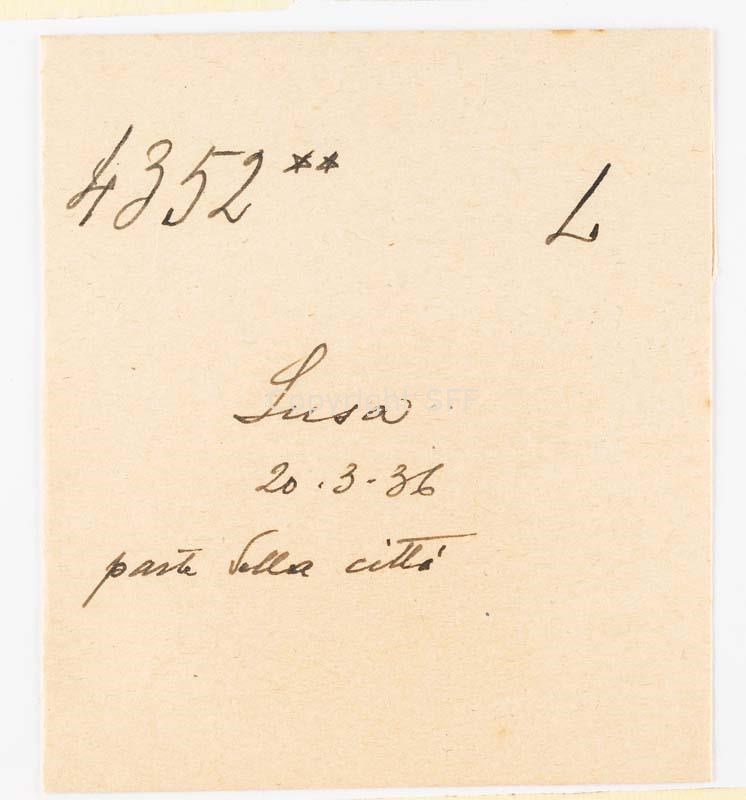 4352** L
Susa
Copyright SFF
20.3.36
parte della città